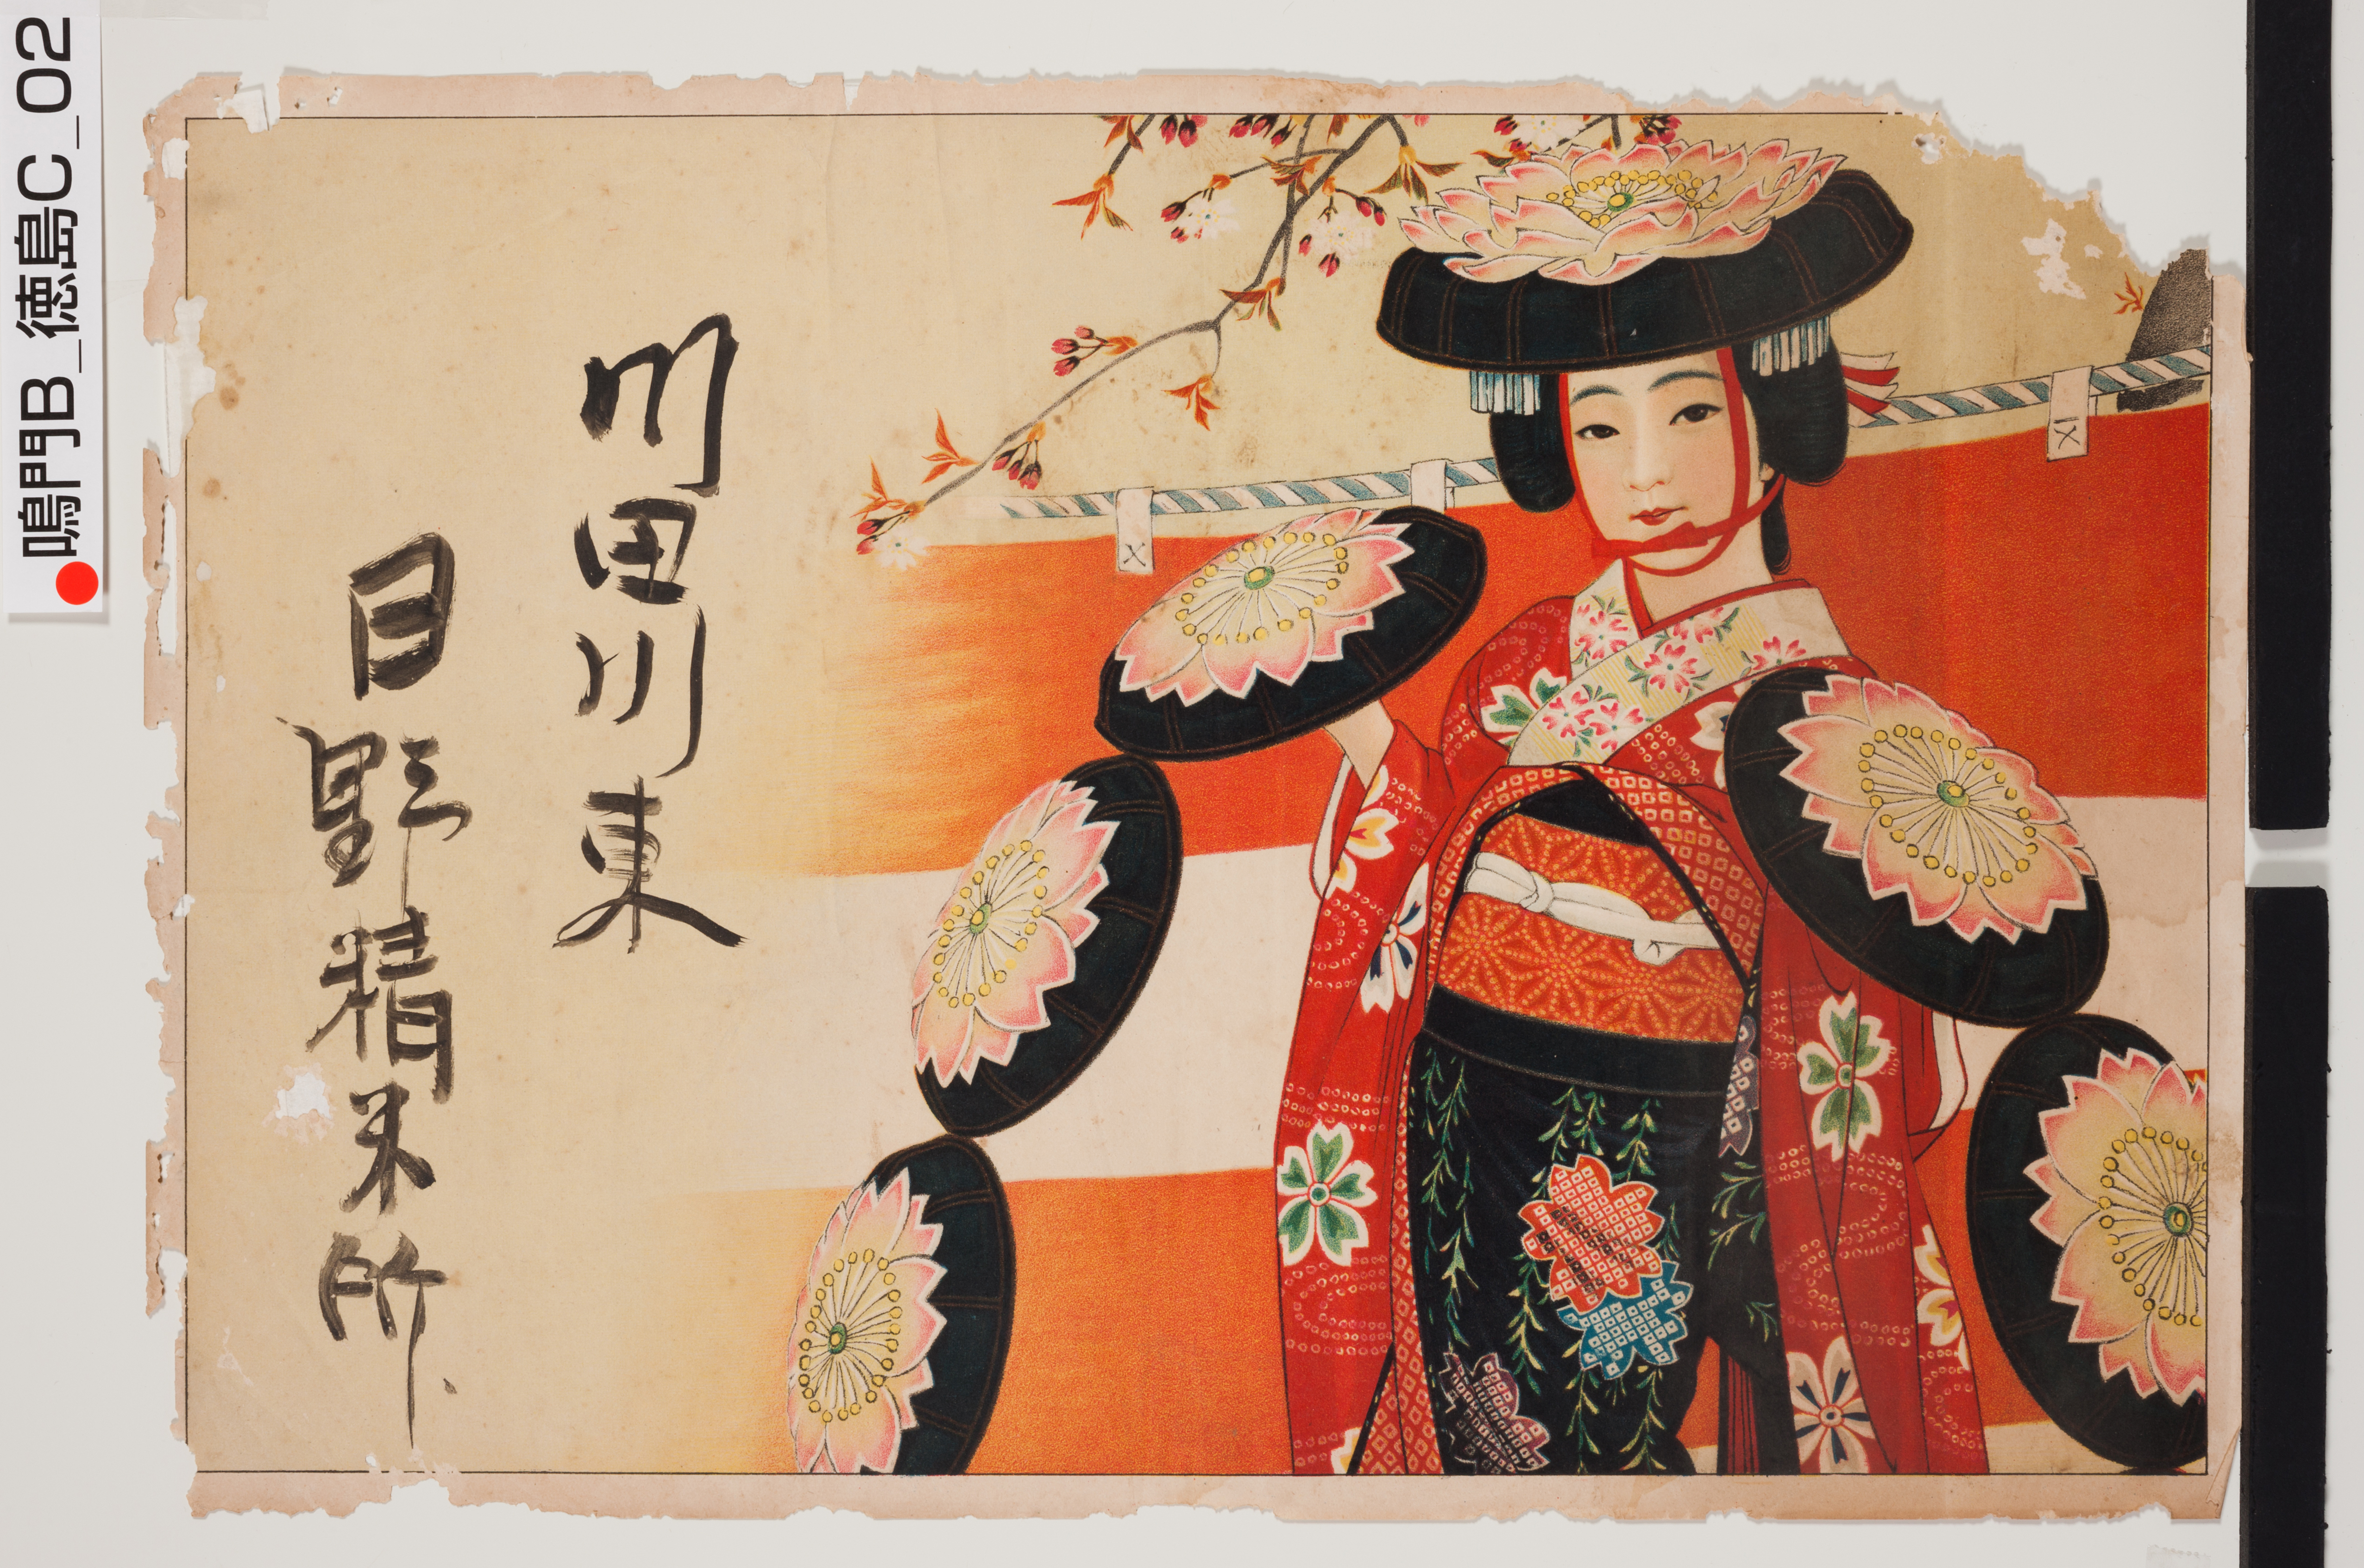 川田川東
日野精米所
鳴門B_徳島C_02